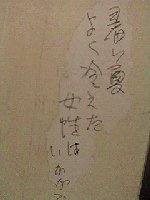 暑い夏
よく冷えた
女性は
いかが?